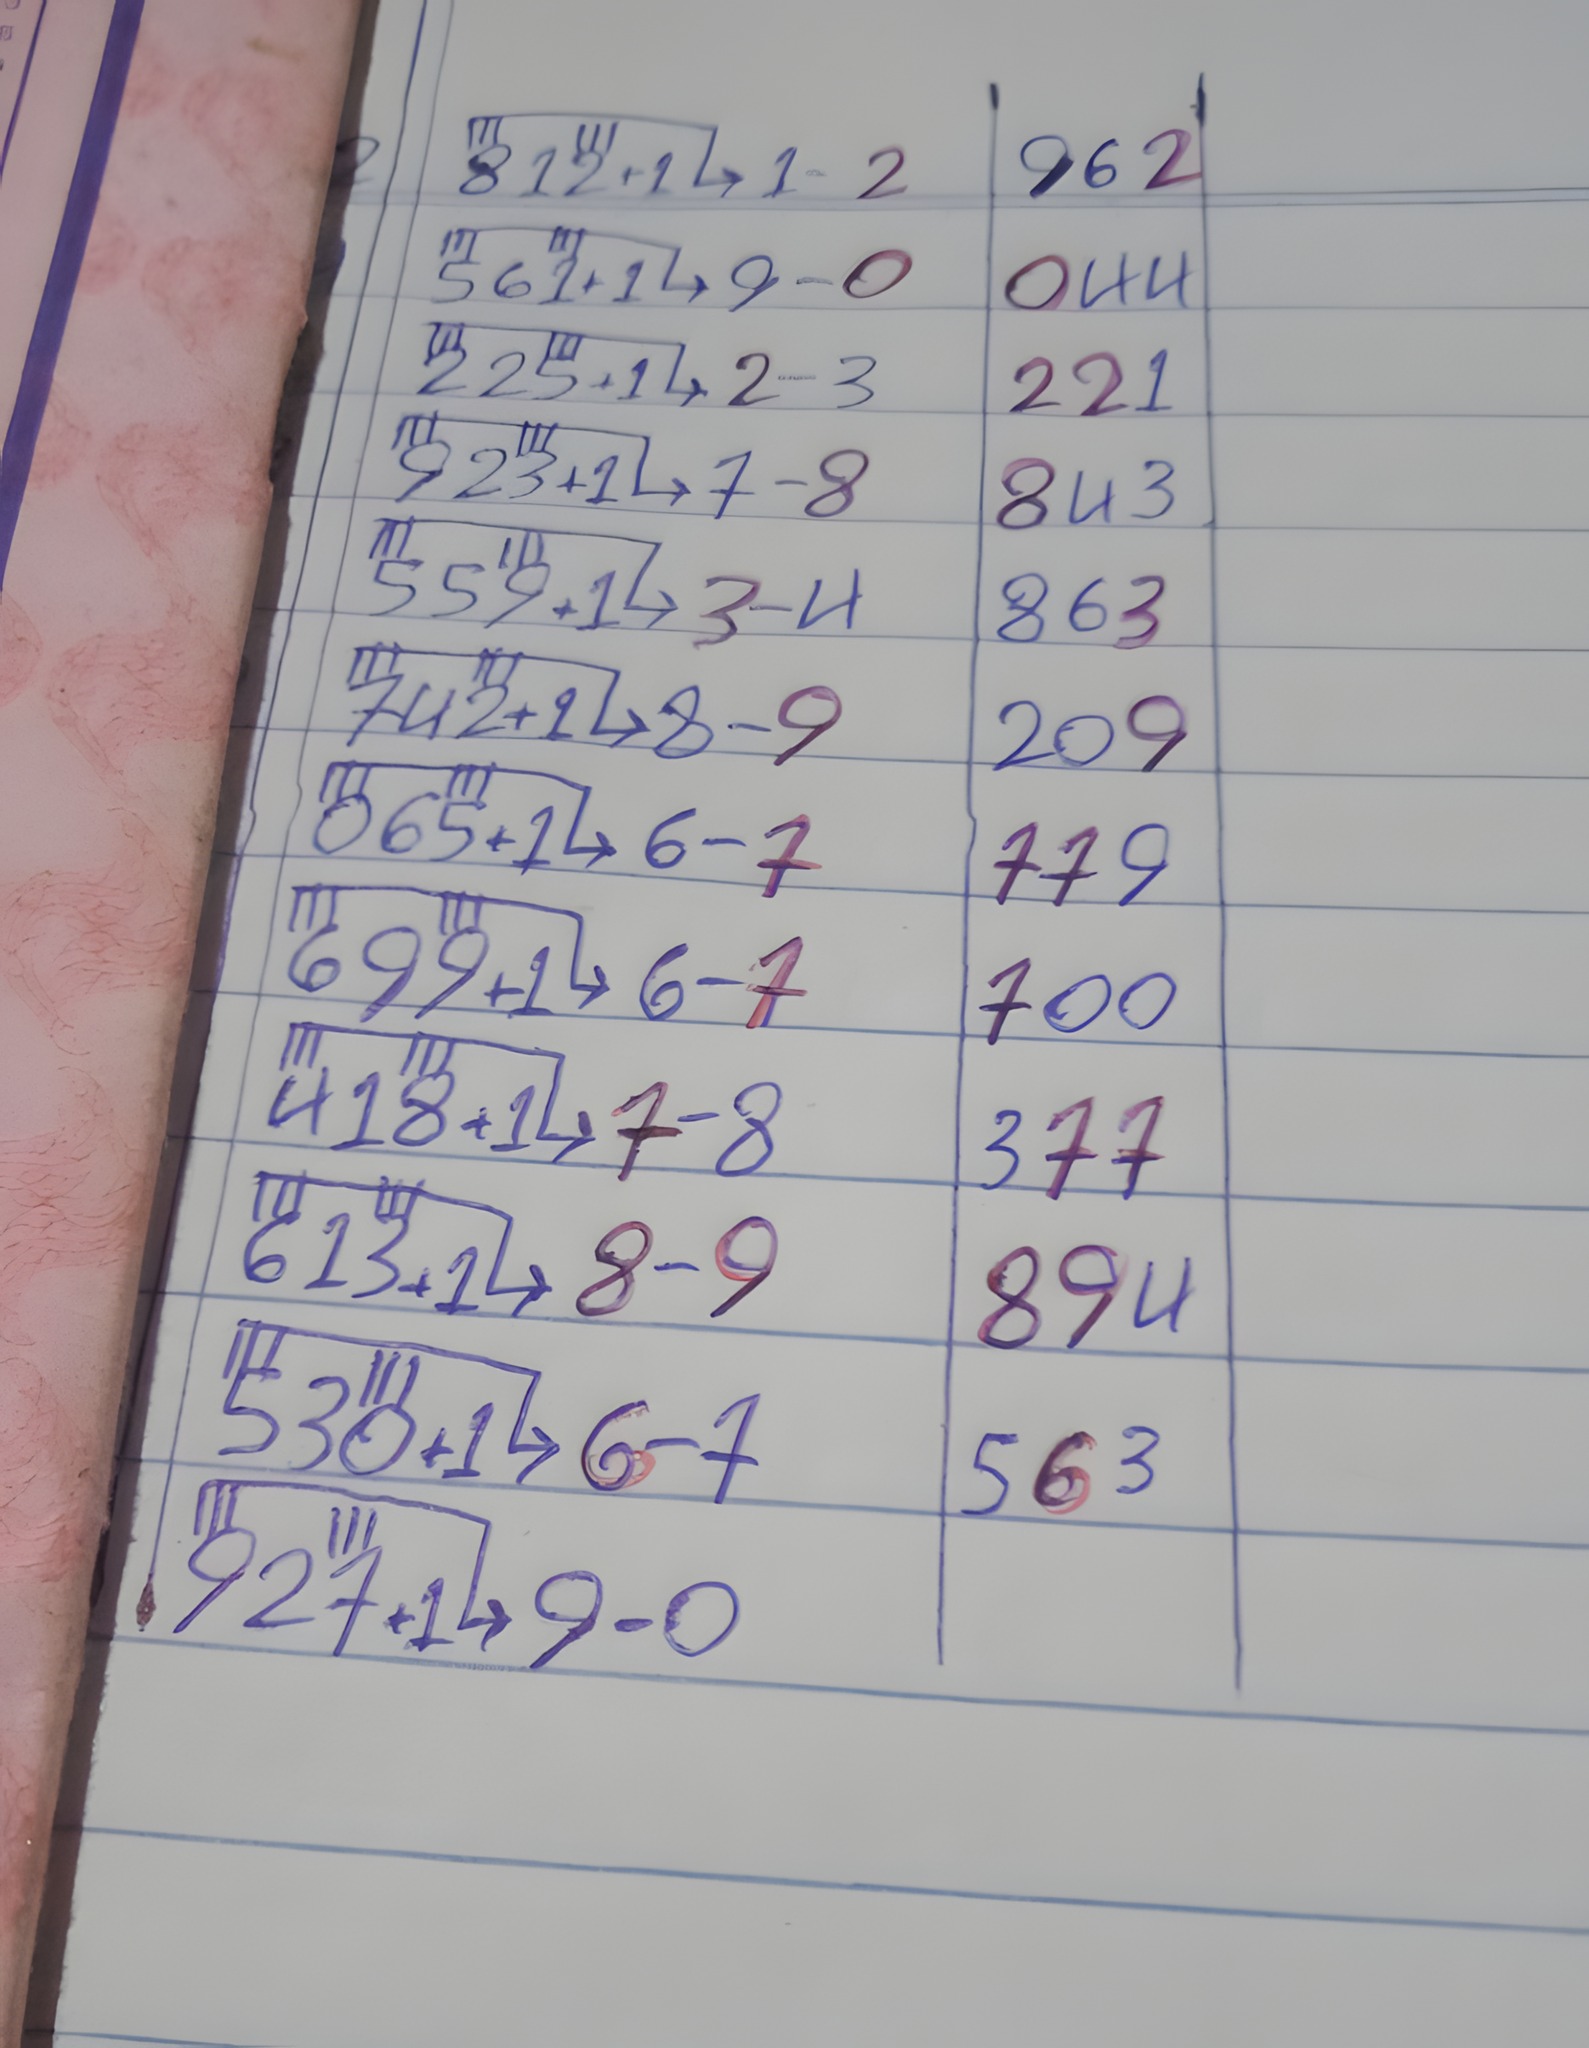 812+1↳1-2 962
561+1↳9-0 044
225+1↳2-3 221
923+1↳7-8 843
559+1↳3-4 863
742+1↳8-9 209
065+1↳6-7 779
699+1↳6-7 700
418+1↳7-8 377
613+1↳8-9 894
530+1↳6-7 563
927+1↳9-0